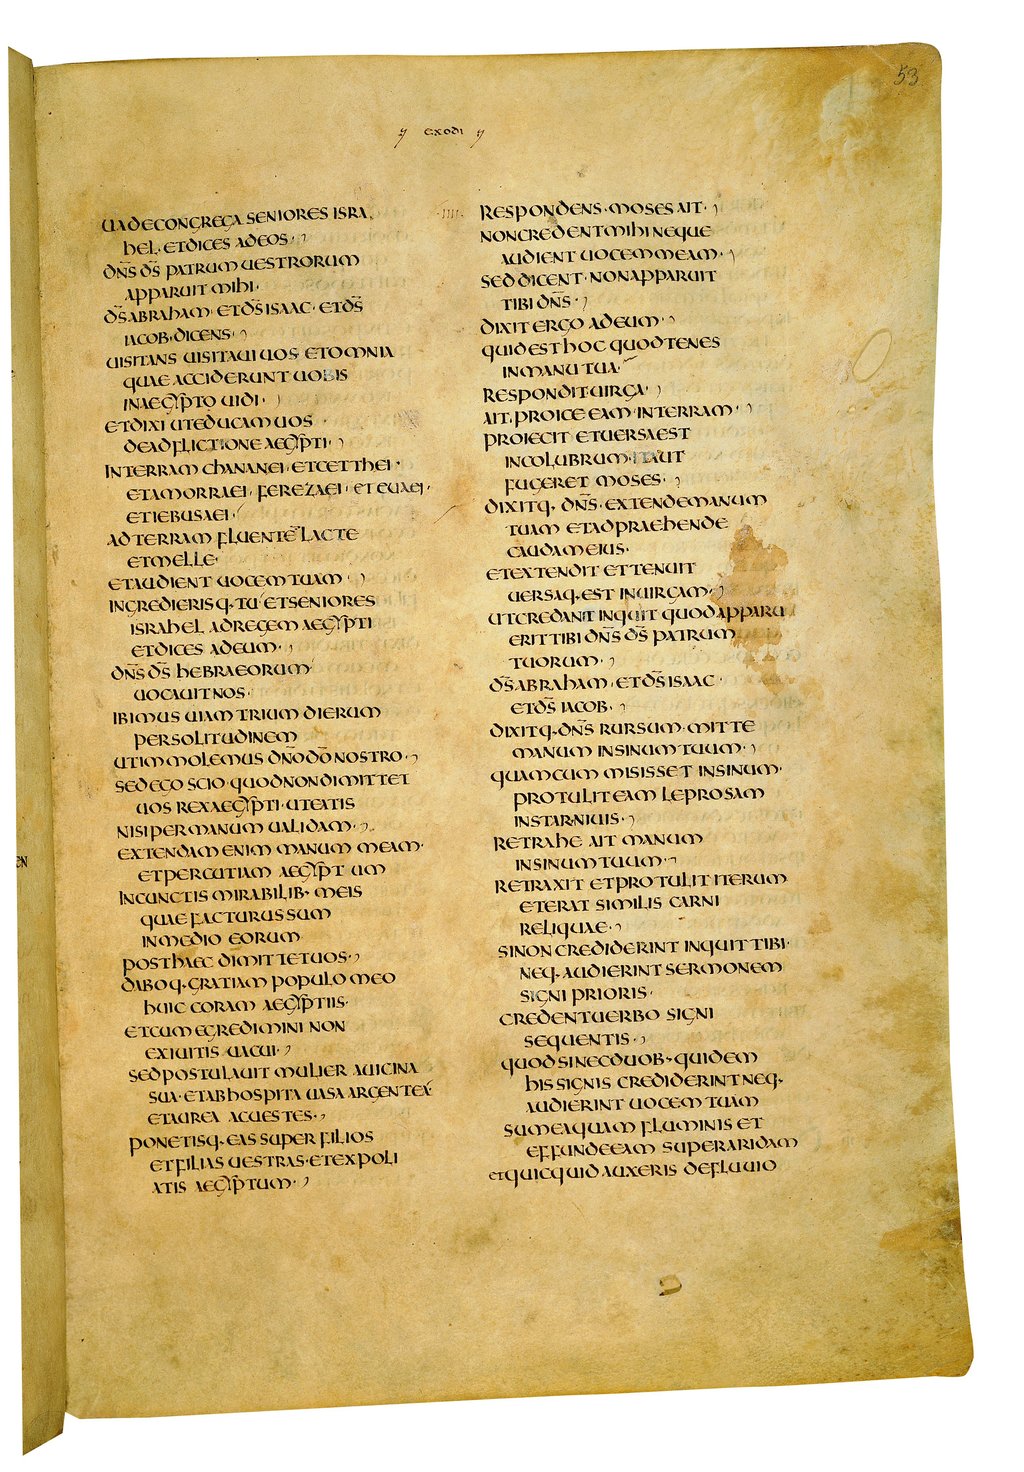 53
EXODI
UADECONGREGA SENIORES ISRA
HEL· ETDICES ADEOS·
DN̄S D̄S PATRUM UESTRORUM
APPARUIT MIHI·
D̄S ABRAHAM· ETD̄S ISAAC· ETD̄S
IACOB· DICENS·
UISITANS UISITAUI UOS ETOMNIA
QUAE ACCIDERUNT UOBIS
INAEGYPTO UIDI·
ETDIXI UTEDUCAM UOS
DEADFLICTIONE AEGYPTI·
INTERRAM CHANANEI· ETCETTHEI·
ETAMORRAEI· FEREZAEI· ETEUAEI·
ETIEBUSAEI·
ADTERRAM FLUENTĒ LACTE
ETMELLE·
ETAUDIENT UOCEM TUAM·
INGREDIERISQ· TU ETSENIORES
ISRAHEL ADREGEM AEGYPTI
ETDICES ADEUM·
DN̄S D̄S HEBRAEORUM
UOCAUIT NOS·
IBIMUS UIAM TRIUM DIERUM
PERSOLITUDINEM
UTIMMOLEMUS DN̄O D̄O NOSTRO·
SEDEGO SCIO QUODNONDIMITTET
UOS REXAEGYPTI· UTEATIS
NISIPERMANUM UALIDAM·
EXTENDAM ENIM MANUM MEAM·
ETPERCUTIAM AEGYPTUM
INCUNCTIS MIRABILIB· MEIS
QUAE FACTURUSSUM
INMEDIO EORUM
POSTHAEC DIMITTETUOS·
DABOQ· GRATIAM POPULO MEO
HUIC CORAM AEGYPTIIS·
ETCUM EGREDIMINI NON
EXIUITIS UACUI·
SEDPOSTULAUIT MULIER AUICINA
SUA· ETABHOSPITA UASA ARGENTEA
ETAUREA ACUESTES·
PONETISQ· EAS SUPER FILIOS
ETFILIAS UESTRAS· ETEXPOLI
ATIS AEGYPTUM·
IIII· RESPONDENS· MOSES AIT·
NONCREDENTMIHI NEQUE
AUDIENT UOCEM MEAM·
SED DICENT· NONAPPARUIT
TIBI DN̄S·
DIXIT ERGO ADEUM·
QUIDEST HOC QUODTENES
INMANU TUA·
RESPONDIT· UIRGA·
AIT, PROICE EAM INTERRAM·
PROIECIT ETUERSAEST
INCOLUBRUM· ITAUT
FUGERET MOSES·
DIXITQ· DN̄S· EXTENDEMANUM
TUAM ETADPRAEHENDE
CAUDAM EIUS·
ETEXTENDIT ETTENUIT
UERSAQ· EST INUIRGAM·
UTCREDANT INQUIT QUODAPPARU
ERIT TIBI DN̄S D̄S PATRUM
TUORUM·
D̄S ABRAHAM· ETD̄S ISAAC·
ETD̄S IACOB·
DIXITQ· DN̄S RURSUM· MITTE
MANUM INSINUM TUUM·
QUAMCUM MISISSET INSINUM·
PROTULIT EAM LEPROSAM
INSTARNIUIS·
RETRAHE AIT MANUM
INSINUM TUUM·
RETRAXIT ETPROTULIT ITERUM
ETERAT SIMILIS CARNI
RELIQUAE·
SINON CREDIDERINT INQUIT TIBI·
NEQ· AUDIERINT SERMONEM
SIGNI PRIORIS·
CREDENTUERBO SIGNI
SEQUENTIS·
QUODSINECDUOB· QUIDEM
HIS SIGNIS CREDIDERINT NEQ·
AUDIERINT UOCEM TUAM
SUMEAQUAM FLUMINIS ET
EFFUNDEEAM SUPERARIDAM
ETQUICQUID AUXERIS DEFLUUIO
EN